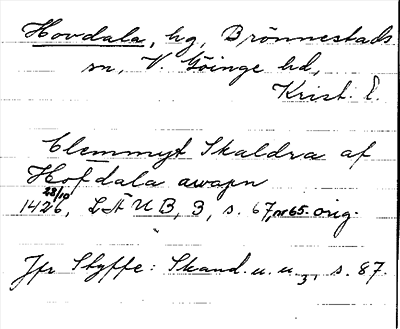 Hovdala, hg, Brönnestads
sn, V. Göinge hd,
Krist. l.
Clemmyt Skaldra af
Hofdala awapn
28/10
1426, LÄUB, 3, s. 67, nr 65. orig.
Jfr Styffe: Skand. u. u3, s. 87.